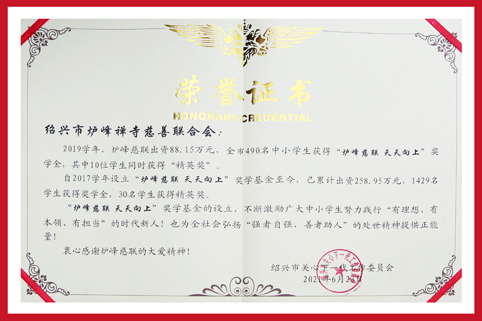 荣誉证书
HONORARY CREDENTIAL
绍兴市炉峰禅寺慈善联合会：
2019学年，炉峰慈联出资88.15万元，全市490名中小学生获得“炉峰慈联 天天向上”奖
学金，其中10位学生同时获得“精英奖”。
自2017学年设立“炉峰慈联 天天向上”奖学基金至今，已累计出资258.95万元，1429名
学生获得奖学金，30名学生获得精英奖。
“炉峰慈联 天天向上”奖学基金的设立，不断激励广大中小学生努力践行“有理想、有
本领、有担当”的时代新人！也为全社会弘扬“强者自强、善者助人”的处世精神提供正能
量！
衷心感谢炉峰慈联的大爱精神！
绍兴市关心下一代工作委员会
2021年6月22日